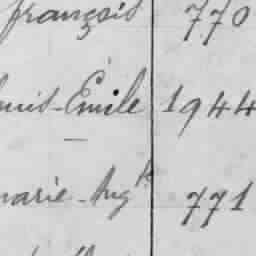 françois 770
ouis-Émile 1944
marie-Aug^te 771